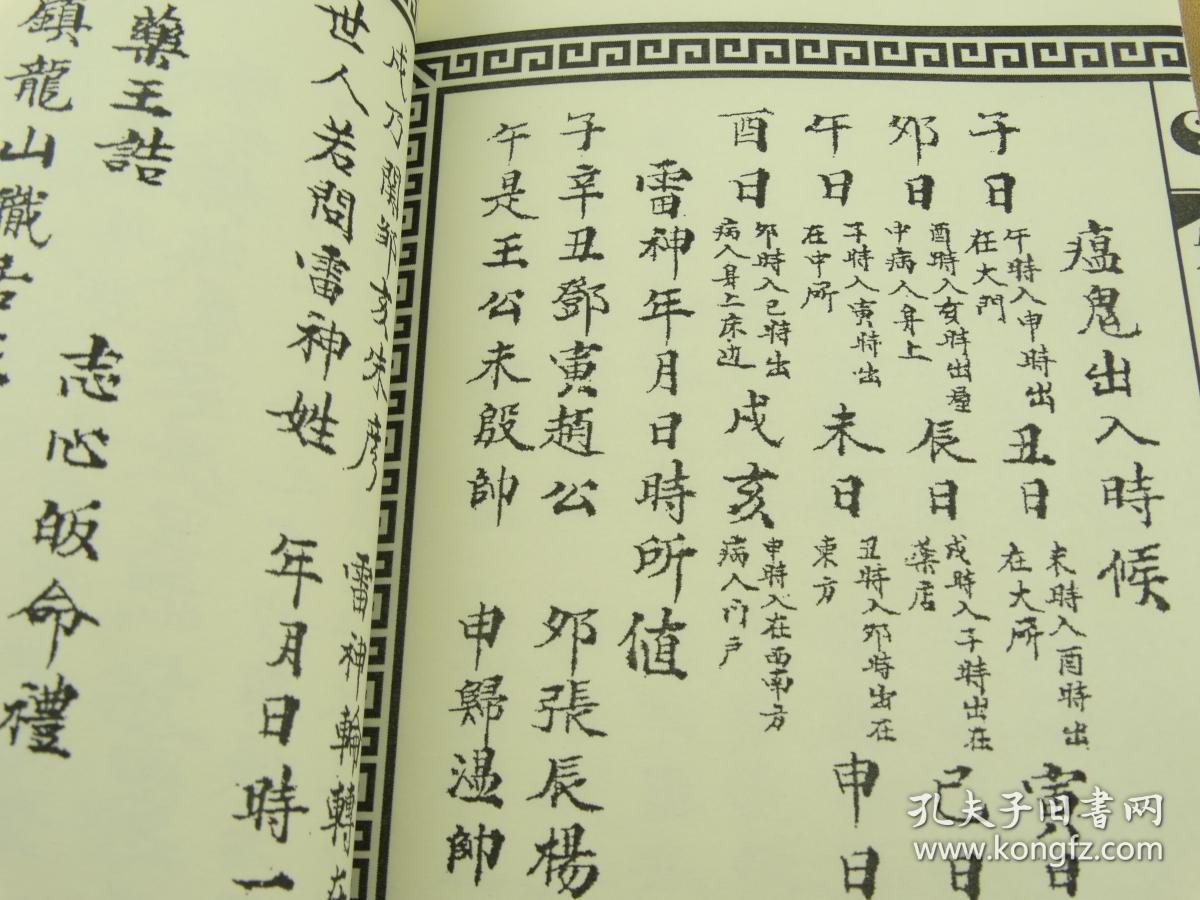 瘟鬼出入時候
子日 午時入申時出在大門 丑日 未時入酉時出在大所 寅日
卯日 酉時入亥時出在中病人身上 辰日 戌時入子時出在藥店 巳日
午日 子時入寅時出在中所 未日 丑時入卯時出在東方 申日
酉日 卯時入巳時出病人身上床边 戌亥 申時入在西南方病人门户
雷神年月日時所值
子辛丑鄧寅趙公 卯張辰楊
午是王公未殷帥 申歸溫帥
雷神輪轉
世人若問雷神姓 年月日時一
藥王誥
志心皈命禮
鎮龍山職
孔夫子旧书网
www.kongfz.com